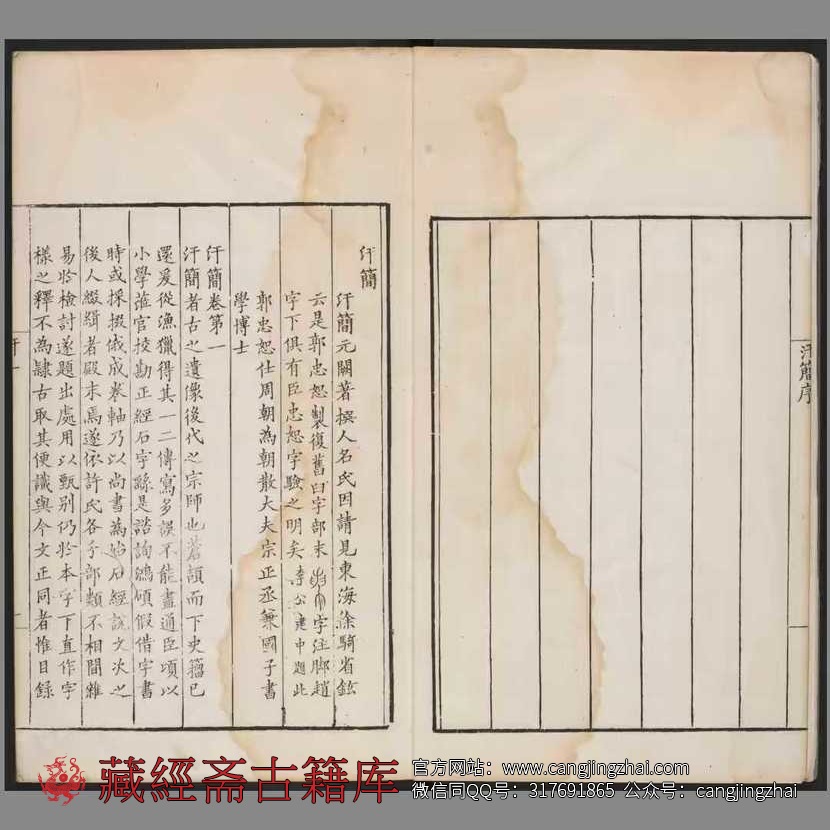 汗簡序
汗簡
汗簡元闕著撰人名氏因請見東海徐騎省鉉
云是郭忠恕製復舊曰字部末字注脚趙
字下俱有臣忠恕字驗之明矣李公建中題此
郭忠恕仕周朝為朝散大夫宗正丞兼國子書
學博士
汗簡卷第一
汗簡者古之遺像後代之宗師也蒼頡而下史籀已
還爰從漁獵得其一二傳寫多誤不能盡通臣頃以
小學蒞官挍勘正經石字繇是諮詢鴻碩假借字書
時或採掇俄成卷軸乃以尚書為始石經說文次之
後人綴緝者殿末焉遂依許氏各分部類不相間雜
易於檢討遂題出處用以甄別仍於本字下直作字
樣之釋不為隸古取其便識與今文正同者惟目錄
汗一
藏經斋古籍库
官方网站：www.cangjingzhai.com
微信同QQ号：317691865 公众号：cangjingzhai